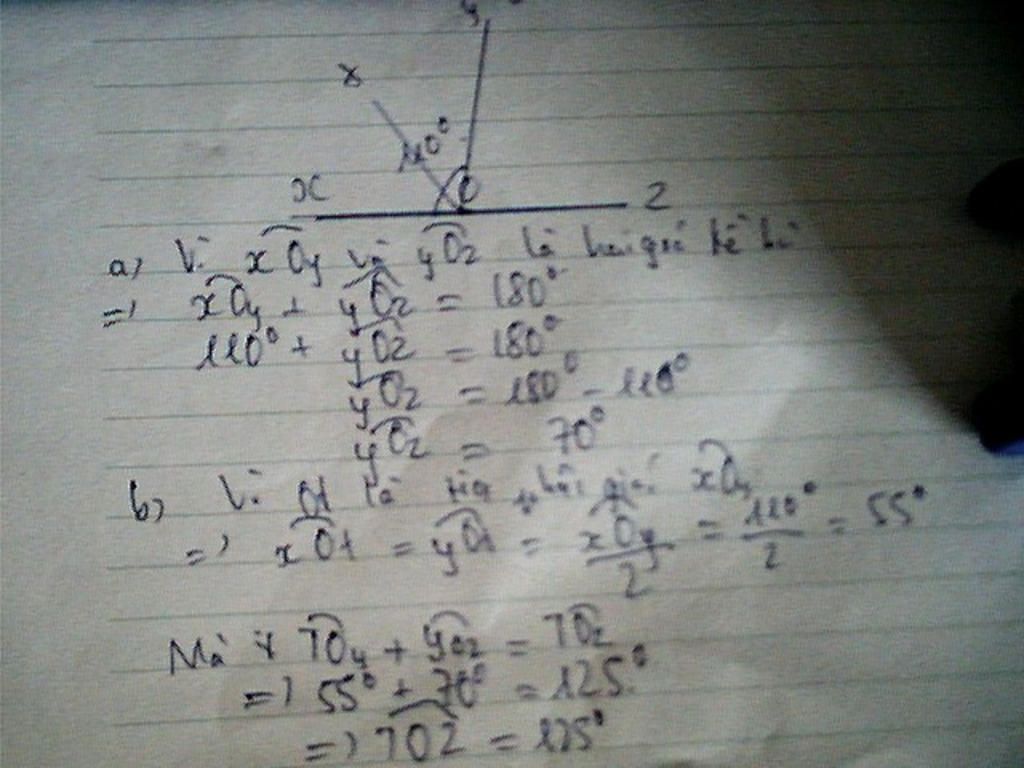 y
x
110°
x O z
a) Vì xOy và yOz là hai góc kề bù
=> xOy + yOz = 180°
110° + yOz = 180°
yOz = 180° - 110°
yOz = 70°
b) Vì Ot là tia phân giác xOy
=> xOt = yOt = xOy/2 = 110°/2 = 55°
Mà TOy + yOz = TOz
=> 55° + 70° = 125°
=> TOZ = 125°